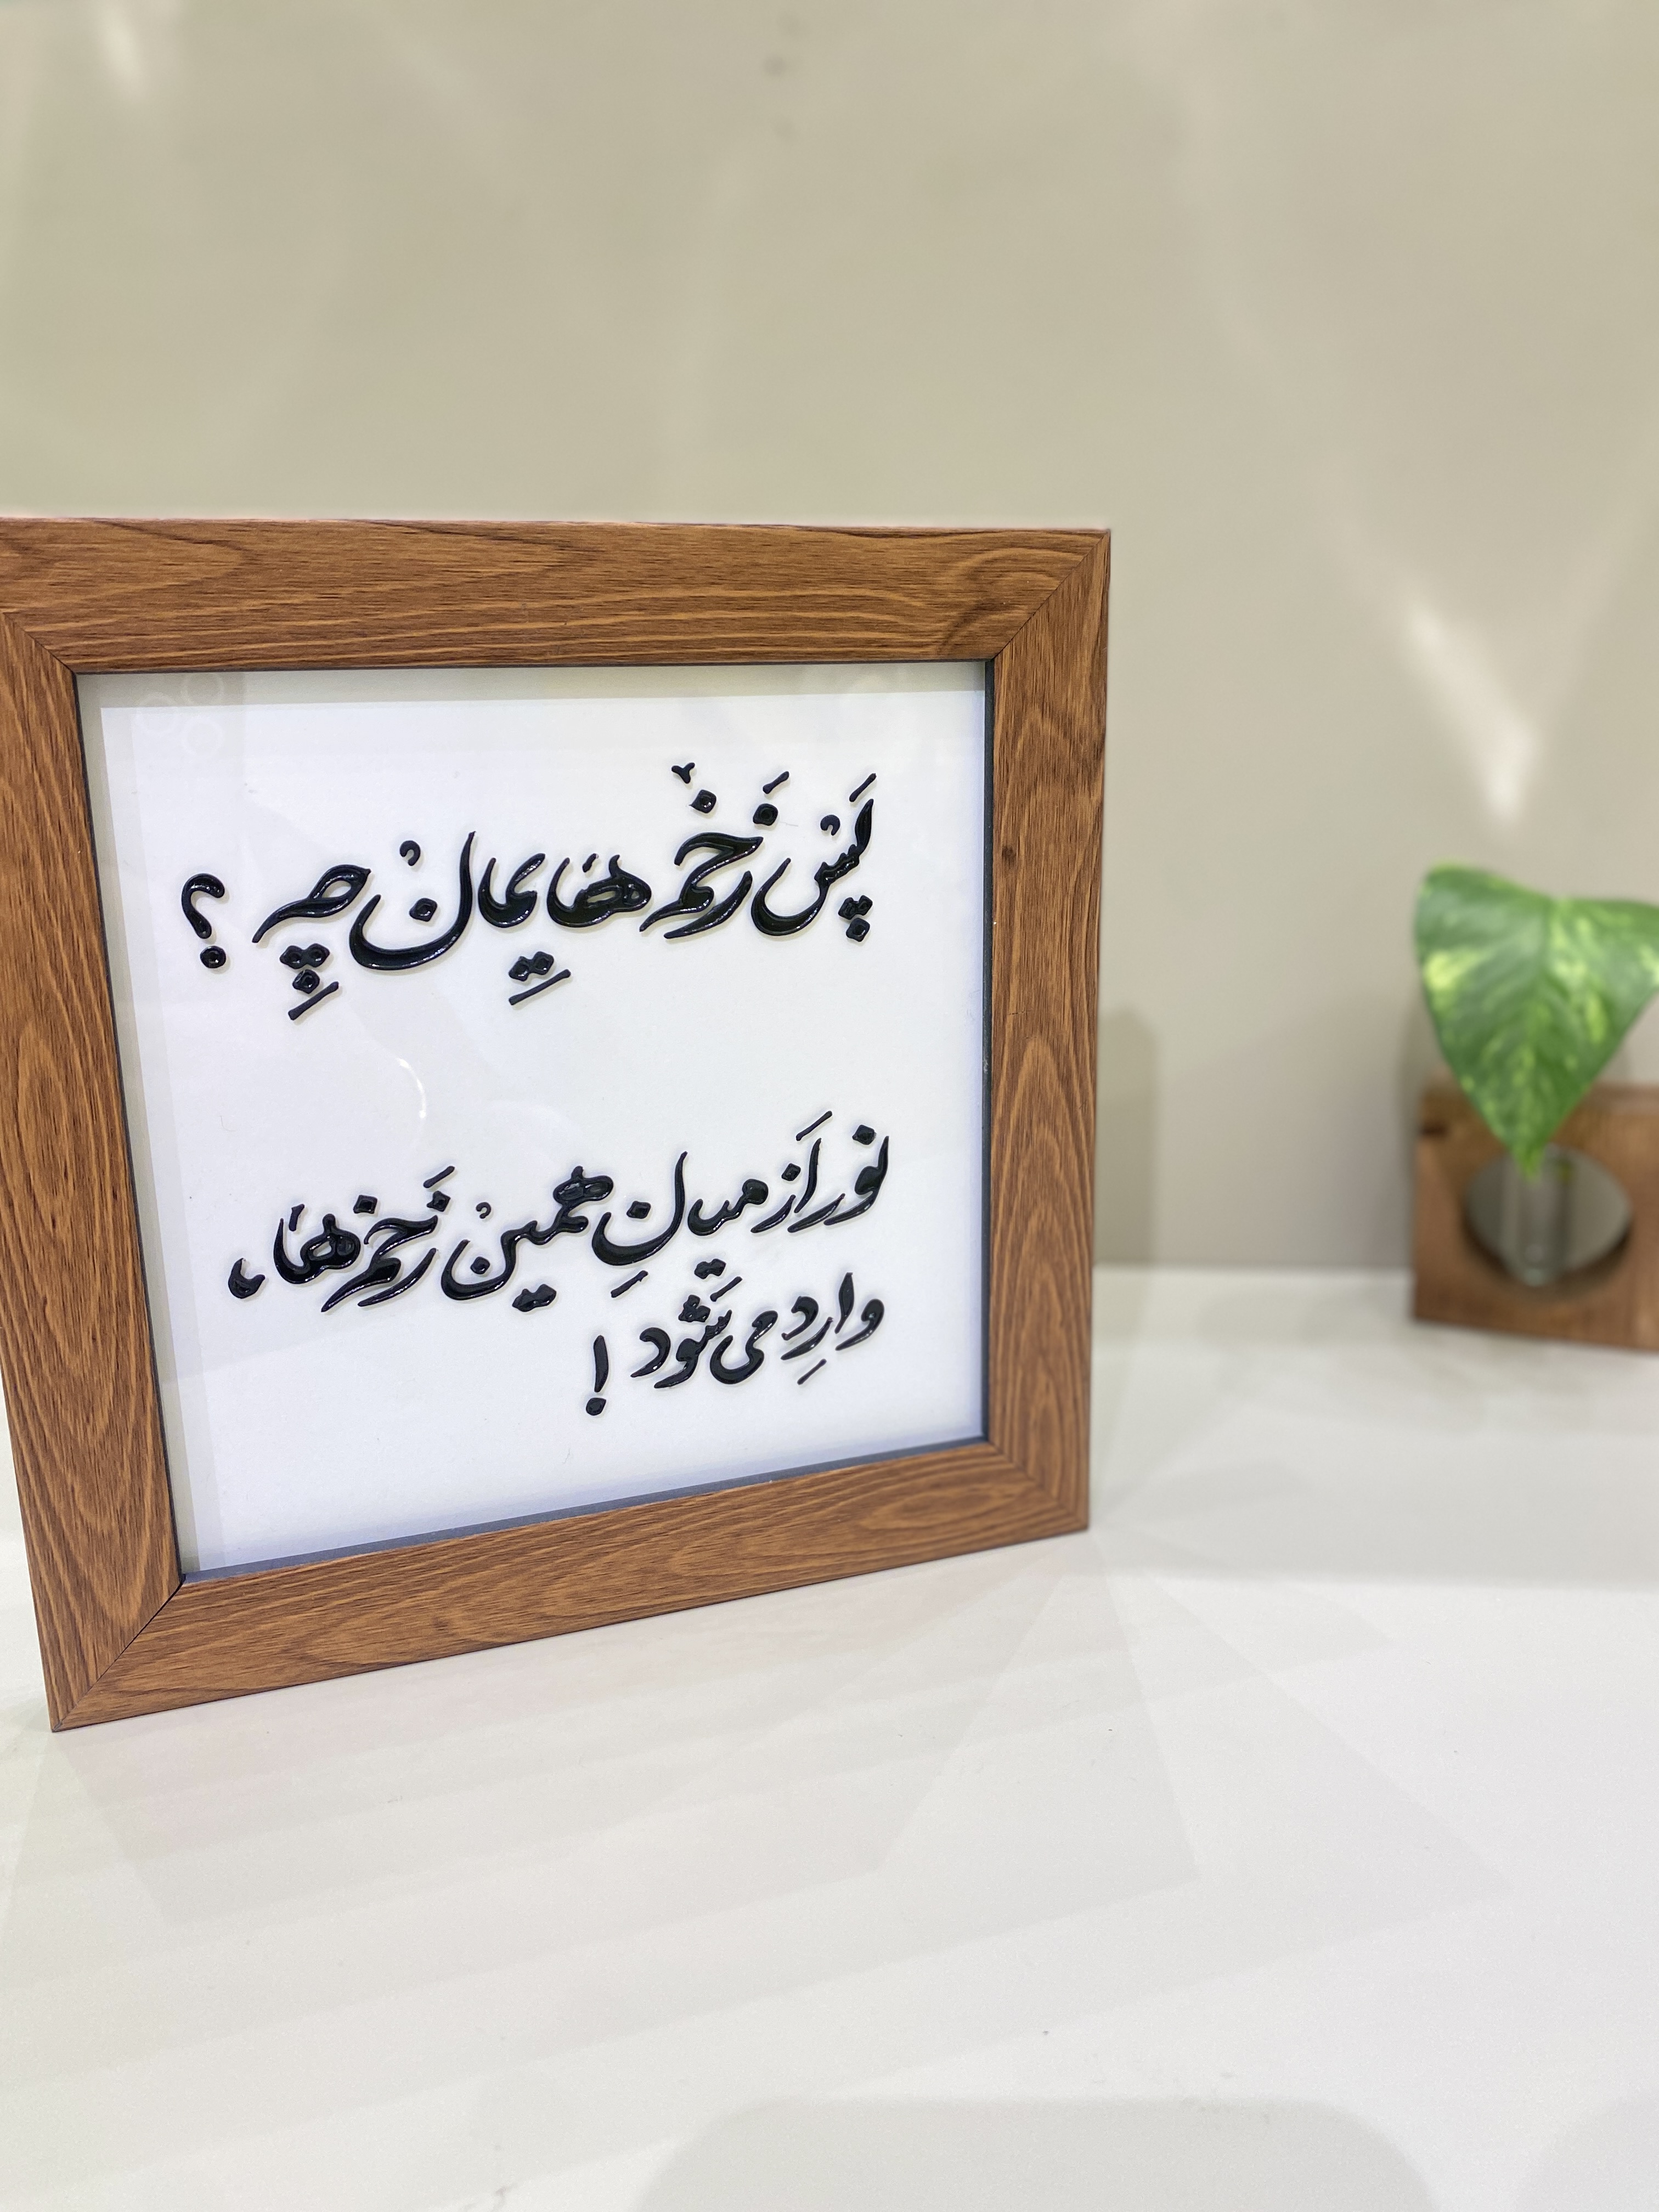 پَسْ زَخْم‌هایِمانْ چِه؟
نور اَز میانِ همینْ زَخم‌ها،
وارِد می‌شَود!